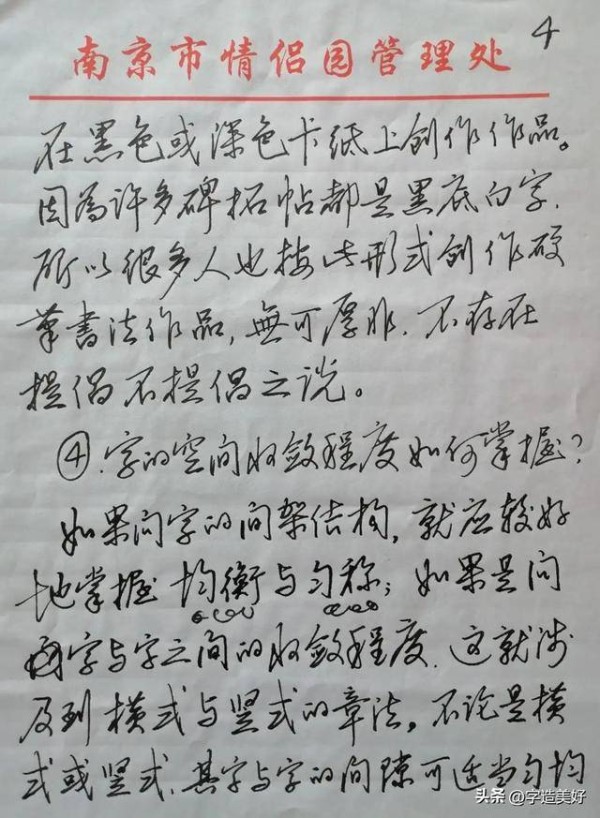 4
南京市情侣园管理处
在黑色或深色卡纸上创作作品。
因為许多碑拓帖都是黑底白字.
所以很多人也按此形式创作硬
筆書法作品,無可厚非.不存在
提倡不提倡之说。
④.字的空间收敛程度如何掌握?
如果问字的间架结构,就应较好
地掌握均衡与匀称;如果是问
字与字之间的收敛程度.这就涉
及到横式与竖式的章法,不论是横
式或竖式.其字与字的间隙可适当匀均
头条@字造美好